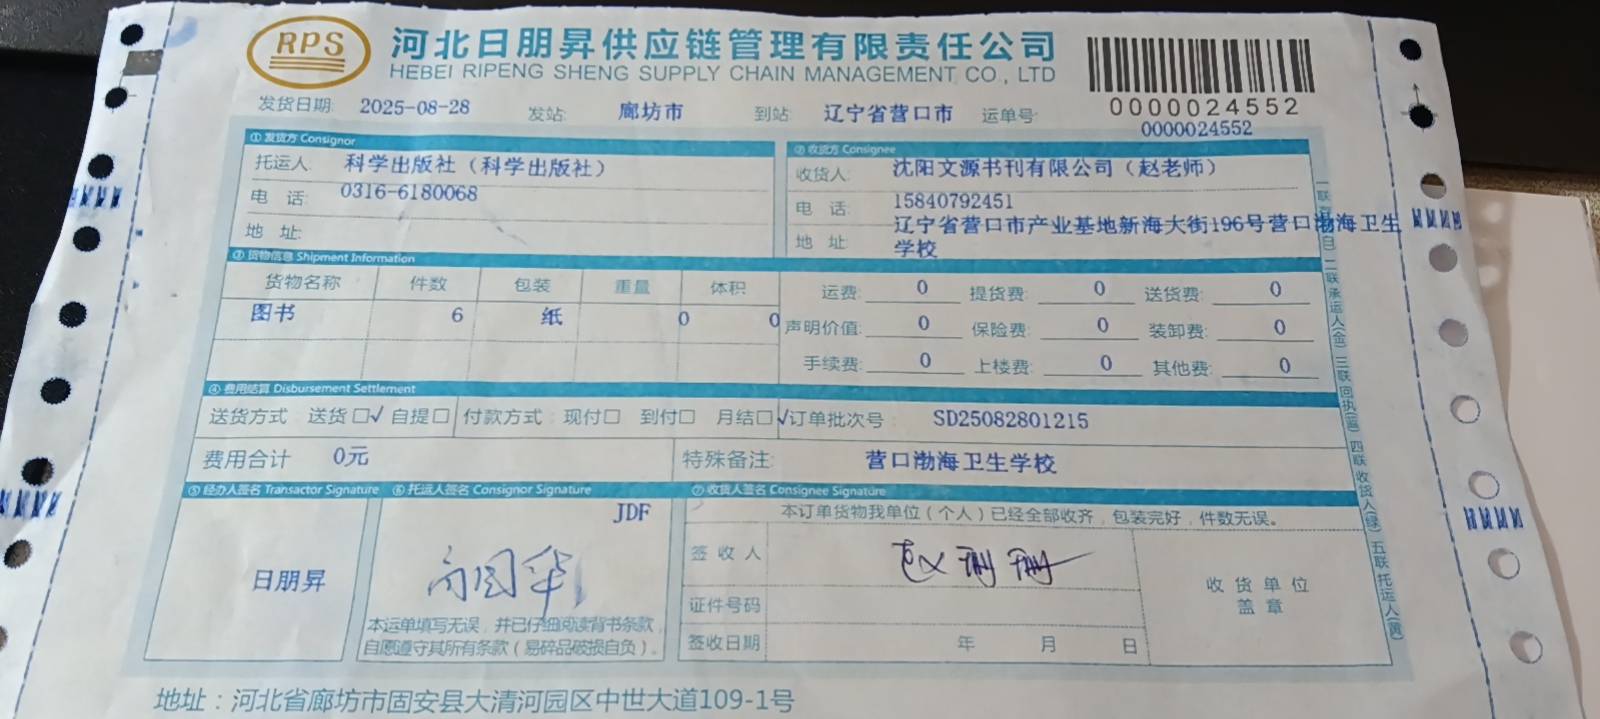 RPS
河北日朋昇供应链管理有限责任公司
HEBEI RIPENG SHENG SUPPLY CHAIN MANAGEMENT CO., LTD
0000024552
发货日期: 2025-08-28 发站: 廊坊市 到站: 辽宁省营口市 运单号: 0000024552
① 发货方 Consignor
托运人: 科学出版社（科学出版社）
电 话: 0316-6180068
地 址:
② 收货方 Consignee
收货人: 沈阳文源书刊有限公司（赵老师）
电 话: 15840792451
地 址: 辽宁省营口市产业基地新海大街196号营口渤海卫生
学校
③ 货物信息 Shipment Information
货物名称 件数 包装 重量 体积
图书 6 纸 0 0
运费: 0 提货费: 0 送货费: 0
声明价值: 0 保险费: 0 装卸费: 0
手续费: 0 上楼费: 0 其他费: 0
④ 费用结算 Disbursement Settlement
送货方式 送货□√ 自提□ 付款方式: 现付□ 到付□ 月结□√ 订单批次号 SD25082801215
费用合计 0元 特殊备注: 营口渤海卫生学校
⑤ 经办人签名 Transactor Signature
日朋昇
⑥ 托运人签名 Consignor Signature
JDF
本运单填写无误，并已仔细阅读背书条款，
自愿遵守其所有条款（易碎品破损自负）。
⑦ 收货人签名 Consignee Signature
本订单货物我单位（个人）已经全部收齐，包装完好，件数无误。
签 收 人
证件号码
签收日期 年 月 日
收 货 单 位
盖 章
二联承运人(金) 三联回执(蓝) 四联收货人(绿) 五联托运人(黄)
地址：河北省廊坊市固安县大清河园区中世大道109-1号